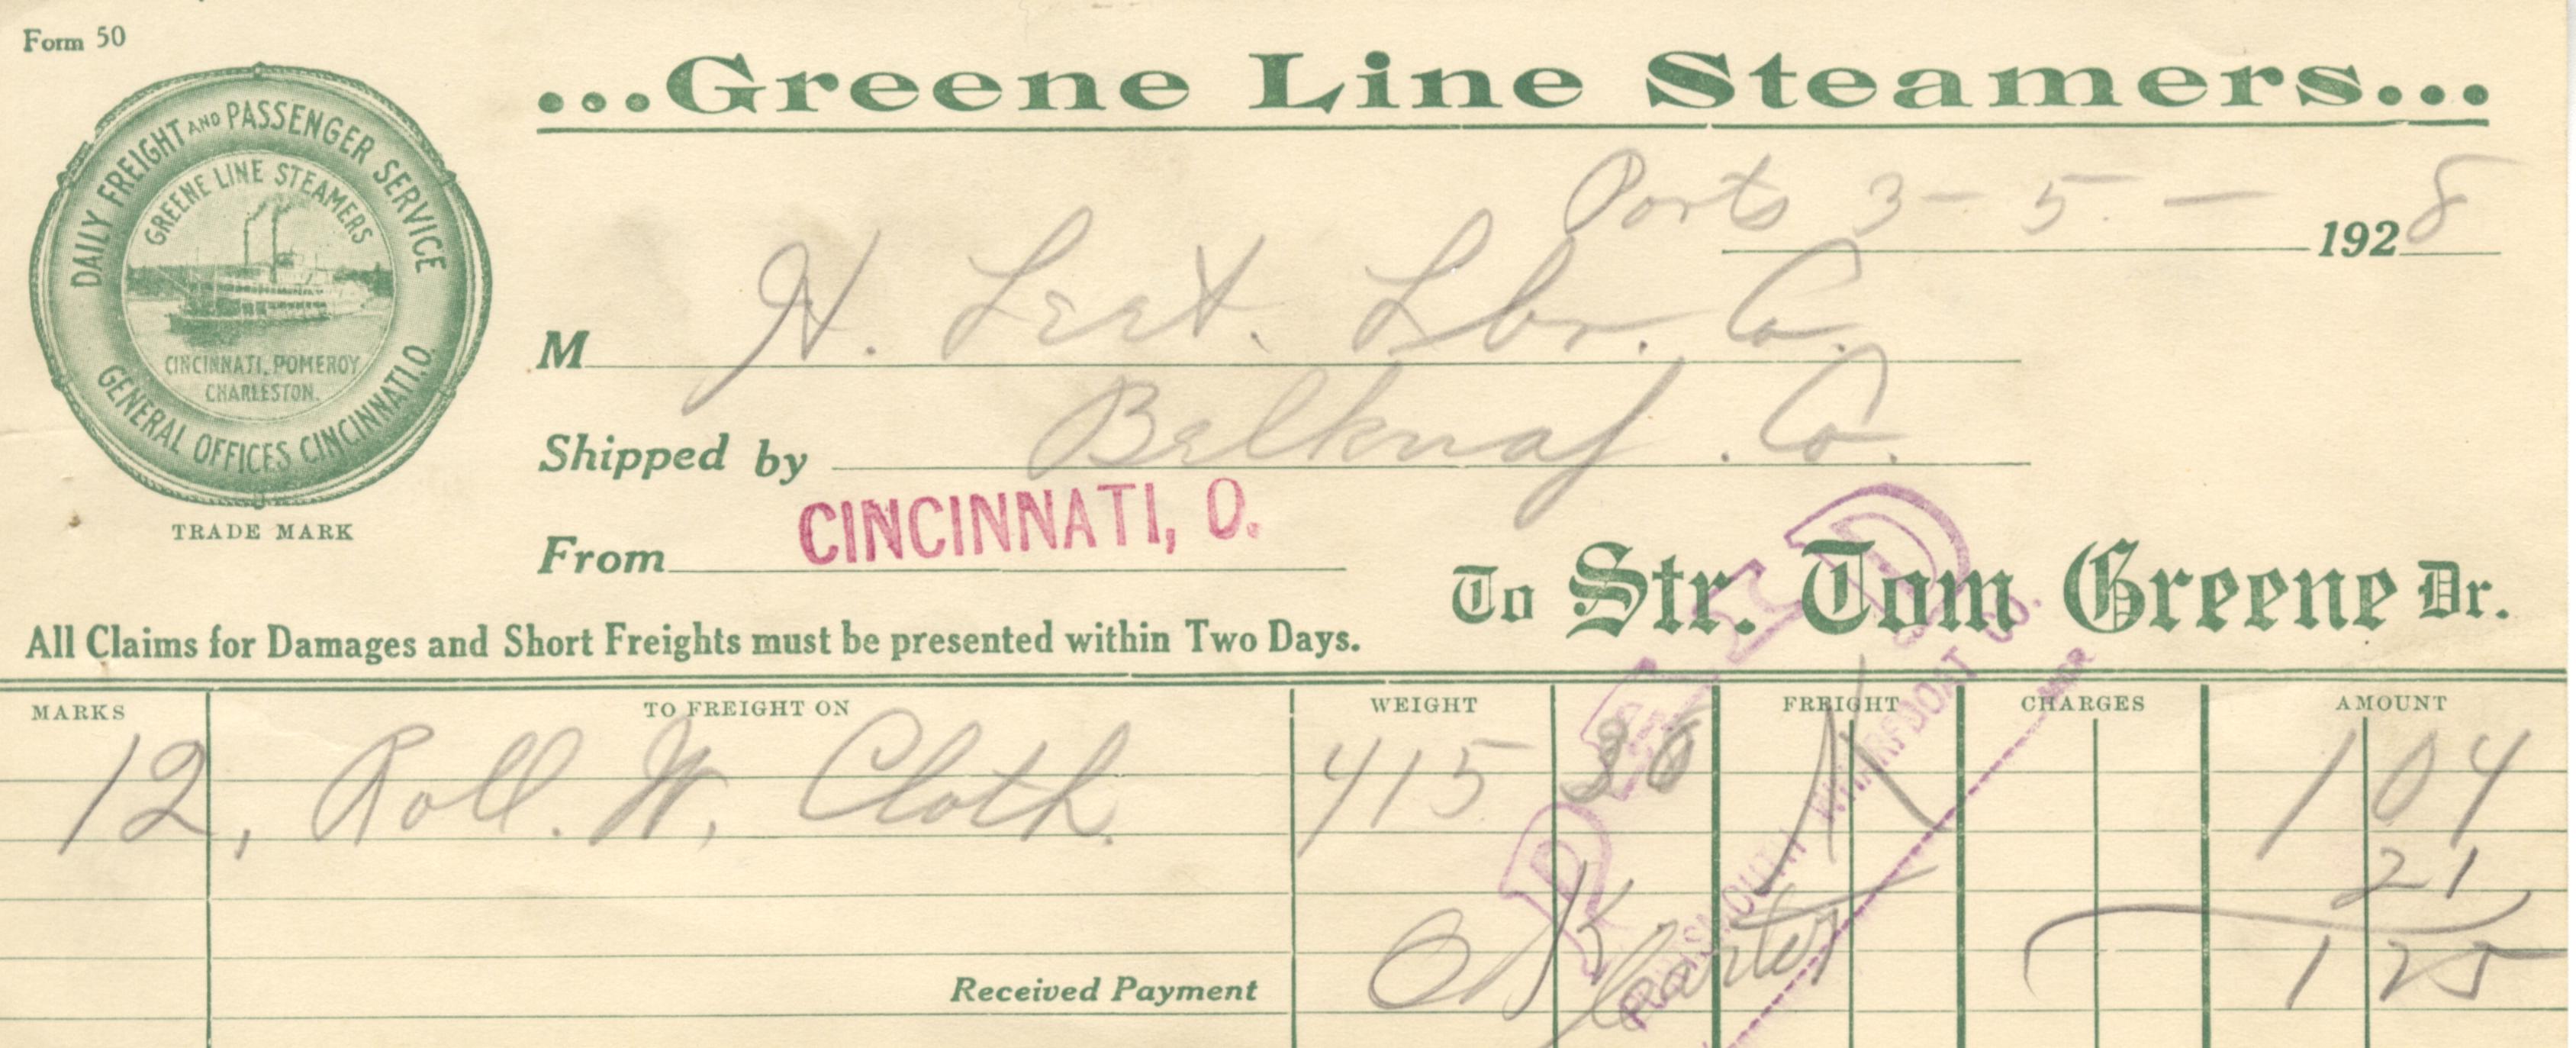 Form 50
...Greene Line Steamers...
DAILY FREIGHT AND PASSENGER SERVICE
GREENE LINE STEAMERS
CINCINNATI, POMEROY
CHARLESTON.
GENERAL OFFICES, CINCINNATI, O.
TRADE MARK
Ports 3 - 5. - 1928
M H. Leet. Lbr. Co.
Shipped by Belknap. Co.
From CINCINNATI, O.
To Str. Tom Greene Dr.
All Claims for Damages and Short Freights must be presented within Two Days.
MARKS TO FREIGHT ON WEIGHT FREIGHT CHARGES AMOUNT
12, Roll. W. Cloth. 415 1 04
21
Received Payment OK Carter 1 25
PAID
PORTSMOUTH WHARFBOAT CO.
MGR